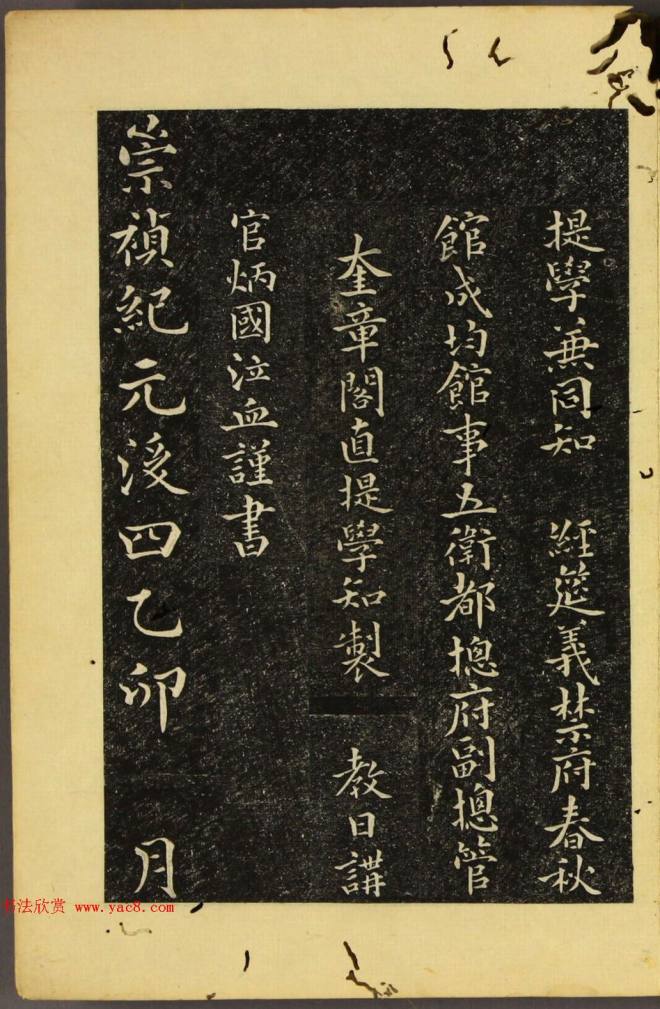 提學兼同知　經筵義禁府春秋
館成均館事五衛都摠府副摠管
奎章閣直提學知製　教日講
官炳國泣血謹書
崇禎紀元後四乙卯　月
书法欣赏 www.yac8.com